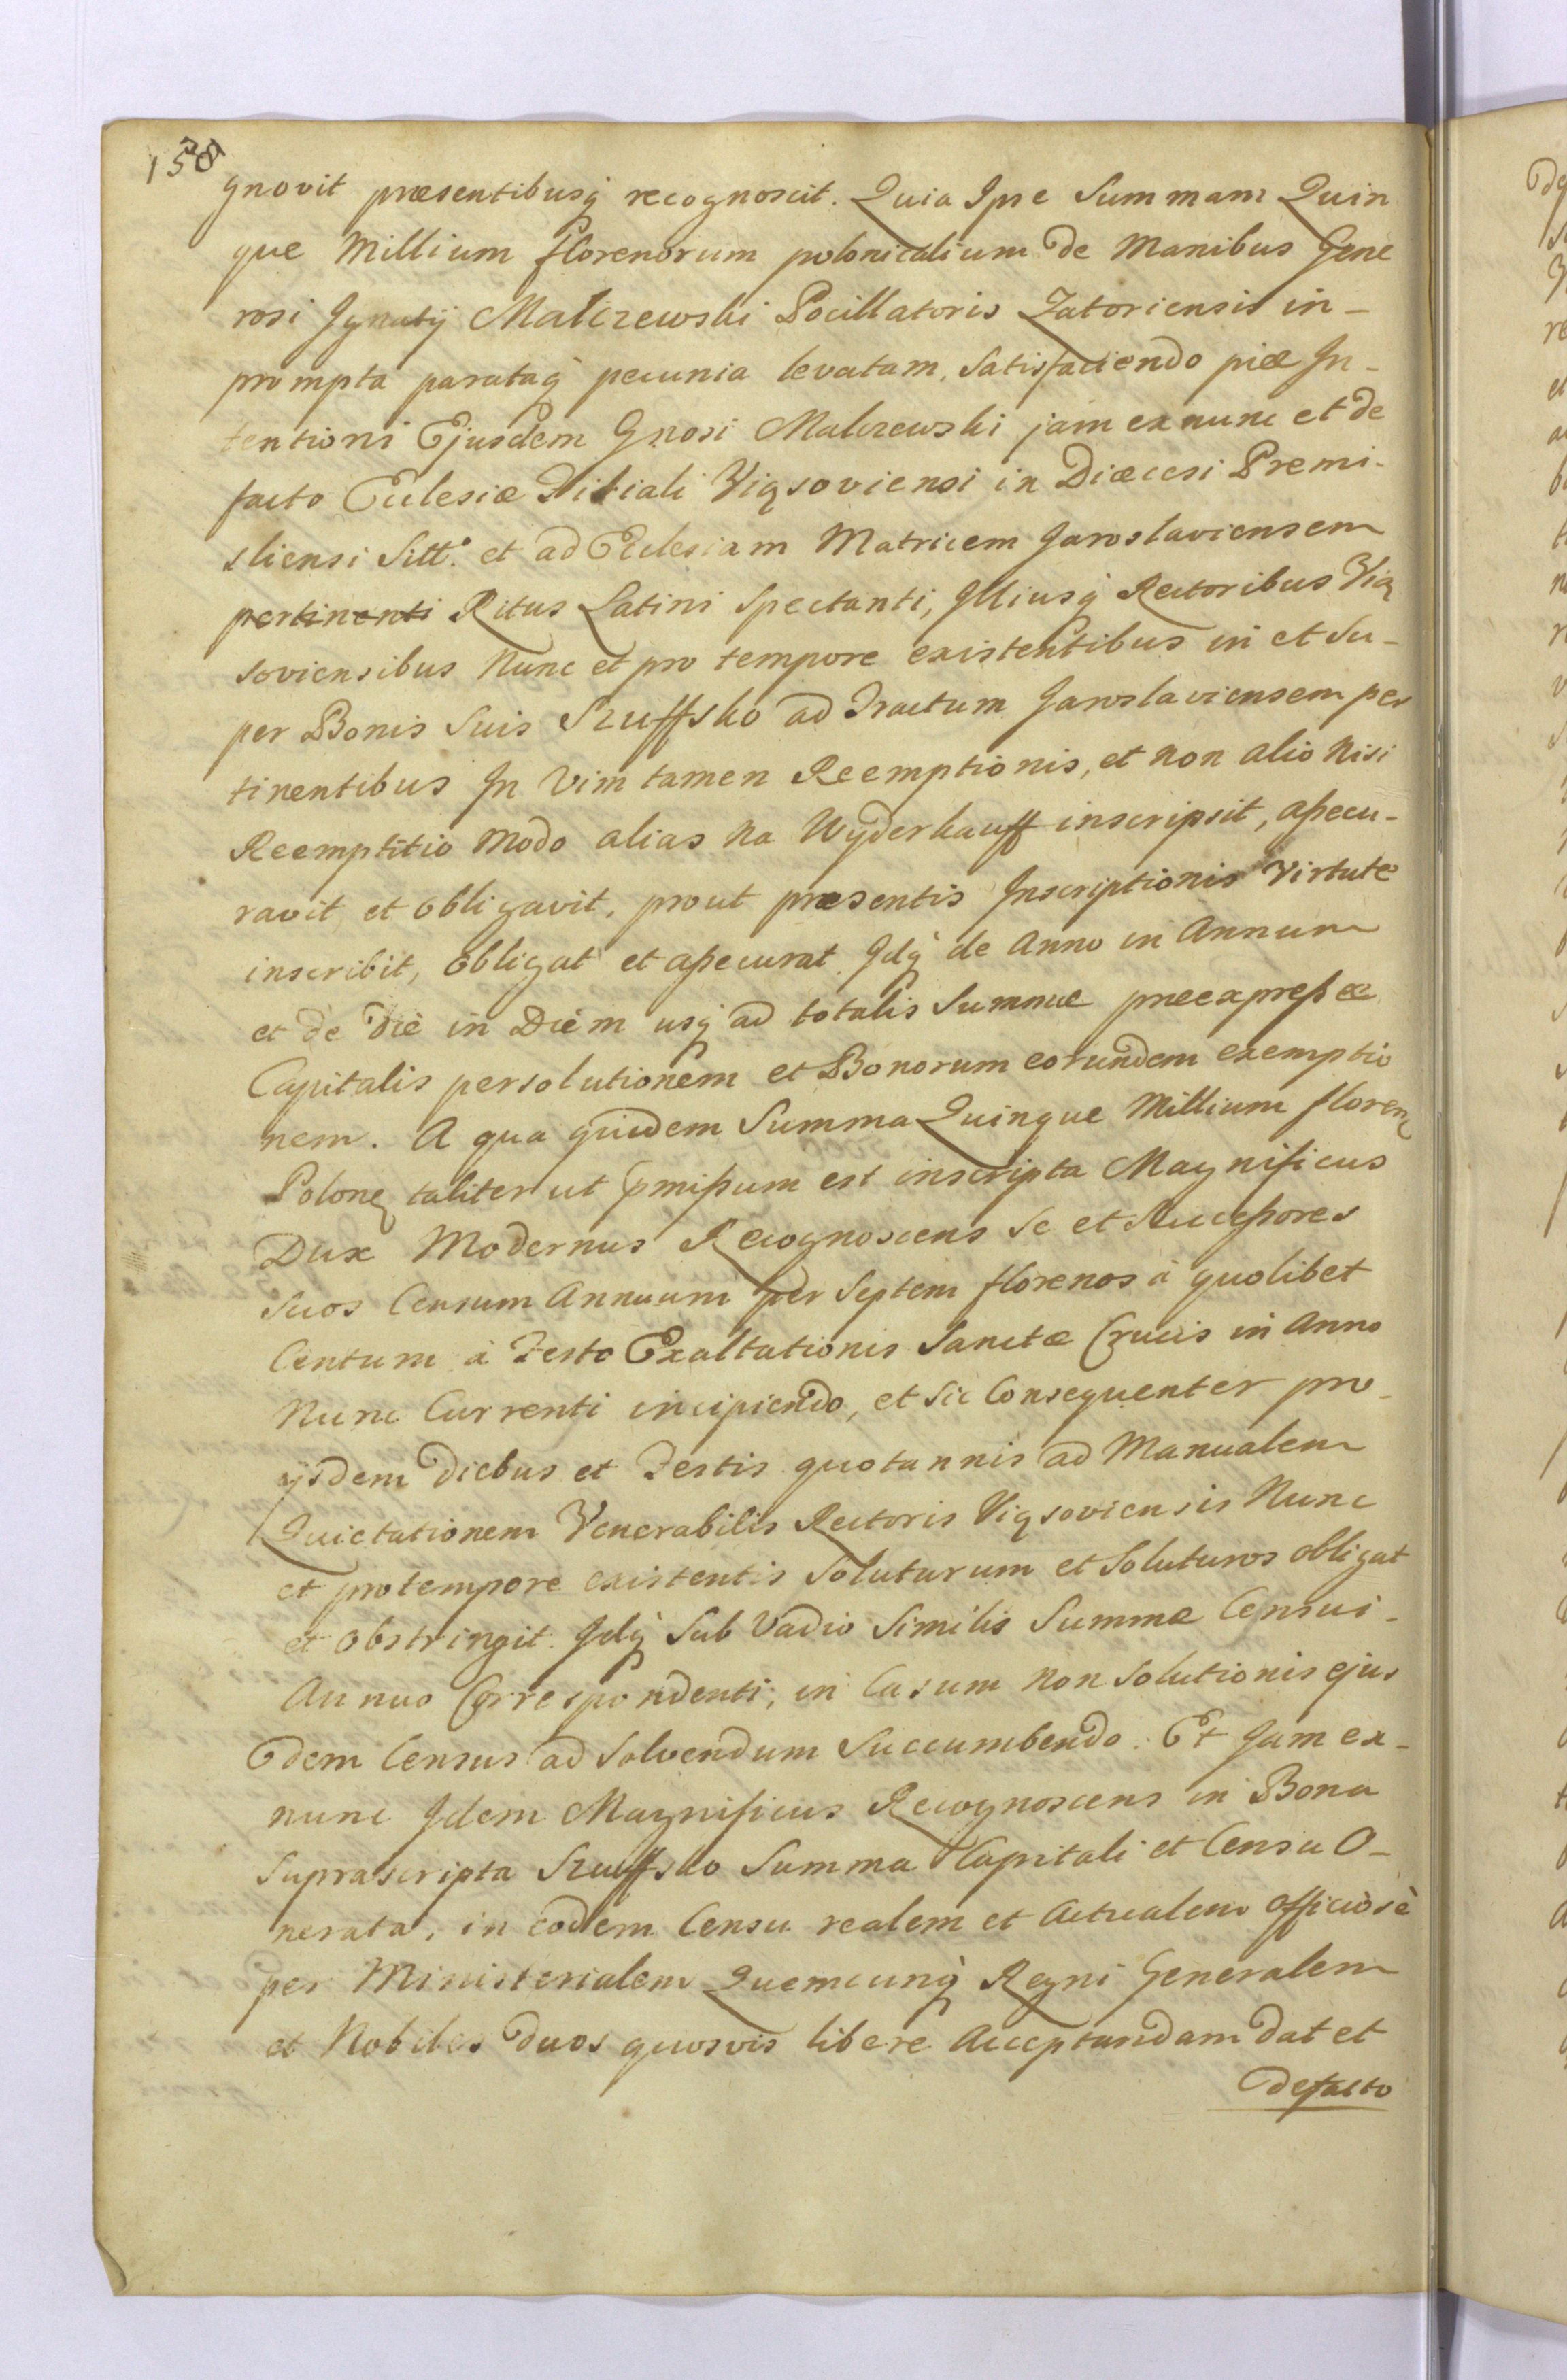 158
gnovit præsentibusq recognoscit. Quia Ipse Summam Quin
que Millium florenorum polonicalium de Manibus Gene
rosi Ignatij Malczewski Pocillatoris Zatoriensis in-
prompta parataq pecunia levatam, Satisfaciendo piæ In-
tentioni Ejusdem Gnosi Malczewski jam exnunc et de
facto Eclesiæ Filiali Viązoviensi in Diæcesi Premi-
sliensi Sitt. et ad Eclesiam Matricem Jaroslaviensem
pertinenti Ritus Latini Spectanti, Illiusq Rectoribus Vią
soviensibus Nunc et pro tempore existentibus in et Su-
per Bonis Suis Szuffsko ad Tractum Jaroslaviensem per
tinentibus In Vim tamen Reemptionis, et non alio Nisi
Reemptitio Modo alias Na Wyderkauff inscripsit, aßecu-
ravit et obligavit, prout præsentis Inscriptionis Virtute
inscribit, Obligat et aßecurat Idq de Anno in Annum
et de Die in Diem usq ad totalis Summæ præexpreßæ
Capitalis persolutionem et Bonorum eorundem exemptio
nem. A qua quidem Summa Quinque Millium floren
Polon taliter ut pmißum est inscripta Magnificus
Dux Modernus Recognoscens Se et Succeßores
Suos Censum Annuum per Septem florenos à quolibet
Centum à Festo Exaltationis Sanctæ Crucis in Anno
Nunc Currenti incipiendo, et Sic Consequenter pro-
ijsdem Diebus et Festis quotannis ad Manualem
Quietationem Venerabilis Rectoris Viąsoviensis Nunc
et pro tempore existentis Soluturum et Soluturos obligat
et obstringit. Idq Sub Vadio Similis Summæ Censui-
Annuo Correspondenti, in Casum Non Solutionis ejus
dem Census ad Solvendum Succumbendo. Et Jam ex-
nunc Idem Magnificus Recognoscens in Bona
Suprascripta Szuffsko Summa Capitali et Censu O-
nerata, in eodem Censu realem et Actualem Officiosè
per Ministerialem Quemcunq Regni Generalem
et Nobiles Duos quosvis libere Acceptandam Dat et
Defacto